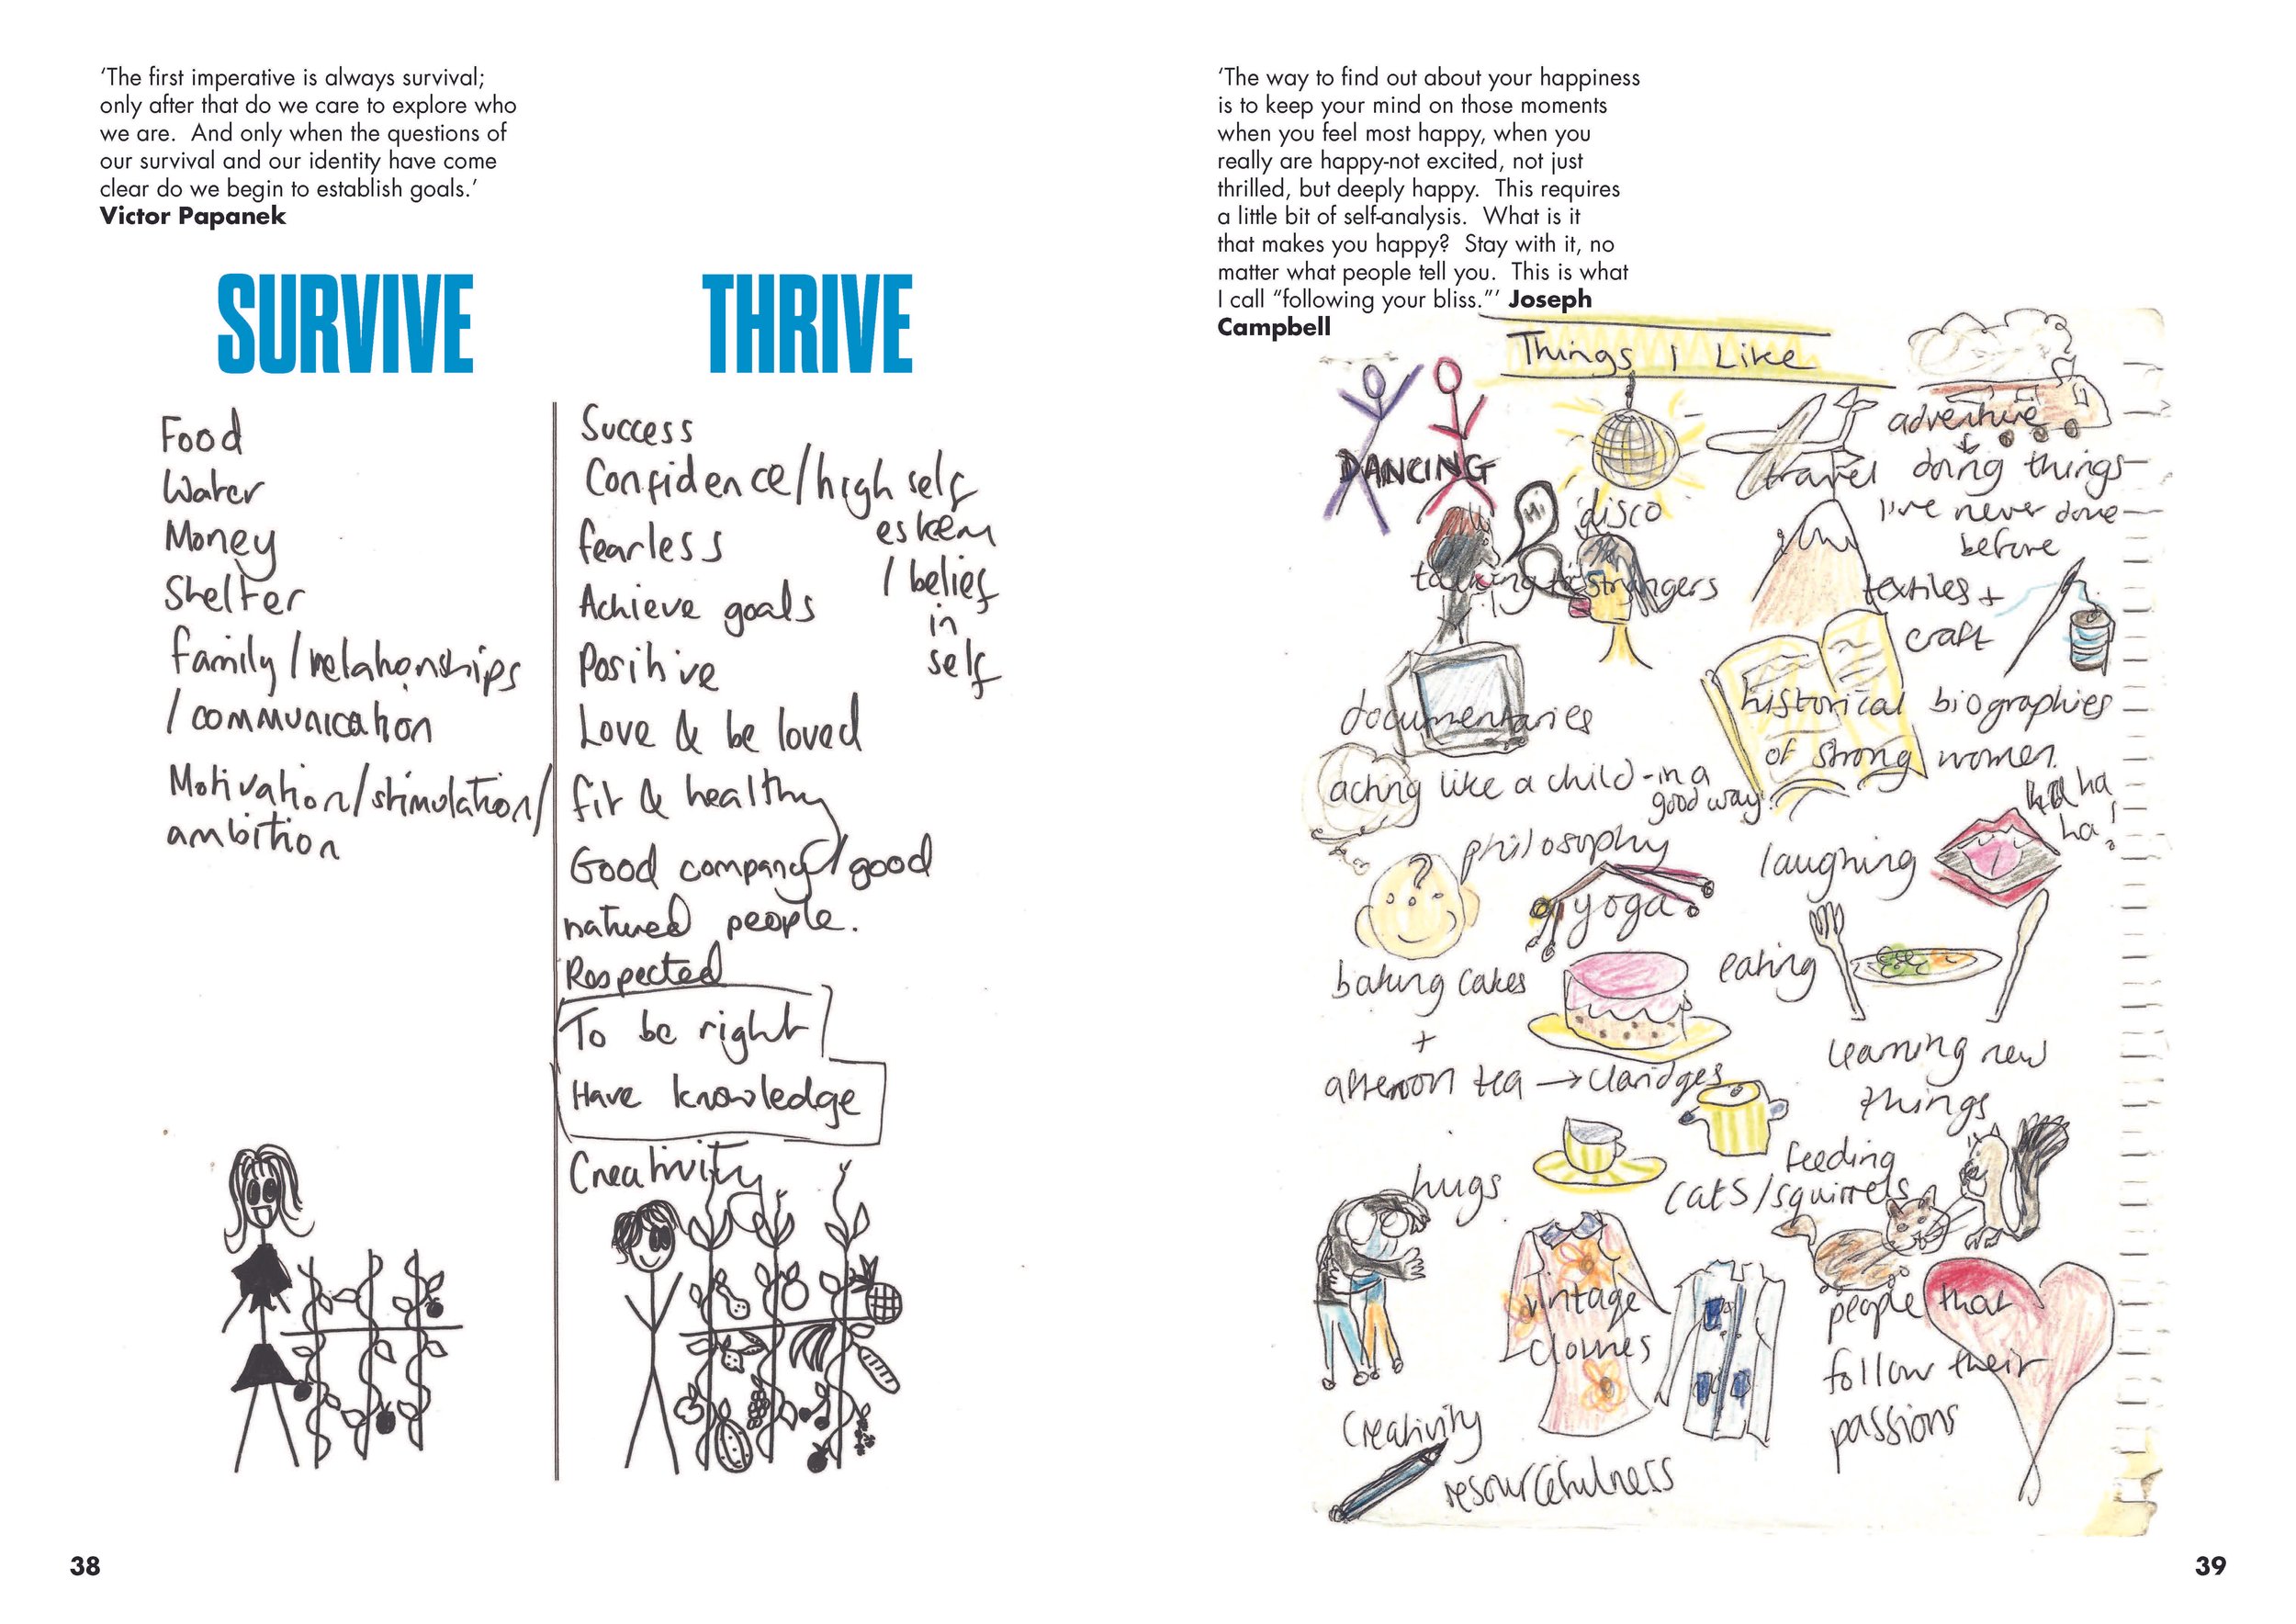 ‘The first imperative is always survival;
only after that do we care to explore who
we are.  And only when the questions of
our survival and our identity have come
clear do we begin to establish goals.’
Victor Papanek
SURVIVE
Food
Water
Money
Shelter
family/relationships
/communication
Motivation/stimulation/
ambition
THRIVE
Success
Confidence/high self
esteem
/ belief
in
self
fearless
Achieve goals
Positive
Love & be loved
fit & healthy
Good company/good
natured people.
Respected
To be right
Have knowledge
Creativity
38
‘The way to find out about your happiness
is to keep your mind on those moments
when you feel most happy, when you
really are happy-not excited, not just
thrilled, but deeply happy.  This requires
a little bit of self-analysis.  What is it
that makes you happy?  Stay with it, no
matter what people tell you.  This is what
I call “following your bliss.”’ Joseph
Campbell
Things I Like
DANCING
disco
travel
adventure
doing things
I've never done
before
Hi
talking to strangers
textiles +
craft
documentaries
historical biographies
of strong women.
acting like a child - in a
good way!
philosophy
yoga
laughing
ha ha
ha!
baking cakes
+
afternoon tea → claridges
eating
learning new
things
hugs
feeding
cats/squirrels
vintage
clothes
people that
follow their
passions
Creativity
resourcefulness
39